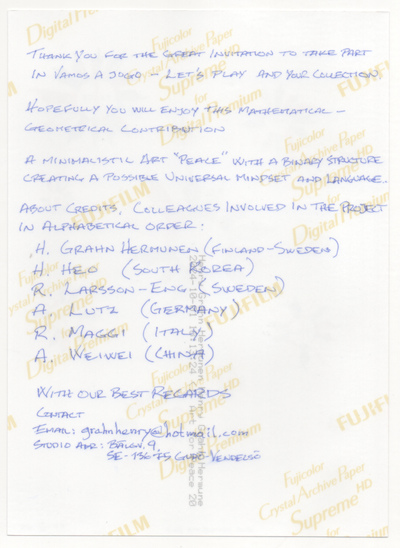 THANK YOU FOR THE GREAT INVITATION TO TAKE PART
IN VAMOS A JUGO – LET'S PLAY AND YOUR COLLECTION
HOPEFULLY YOU WILL ENJOY THIS MATHEMATICAL –
GEOMETRICAL CONTRIBUTION
A MINIMALISTIC ART "PEACE" WITH A BINARY STRUCTURE
CREATING A POSSIBLE UNIVERSAL MINDSET AND LANGUAGE..
ABOUT CREDITS, COLLEAGUES INVOLVED IN THE PROJECT
IN ALPHABETICAL ORDER:
H. GRAHN HERMUNEN (FINLAND-SWEDEN)
H. HEO (SOUTH KOREA)
R. LARSSON-ENG (SWEDEN)
A. LUTZ (GERMANY)
R. MAGGI (ITALY)
A. WEIWEI (CHINA)
WITH OUR BEST REGARDS
CONTACT
EMAIL: grahnhenry@hotmail.com
STUDIO ADR: BÅLGV. 9,
SE-136 75 VENDELSÖ
Fujicolor
Crystal Archive Paper
Supreme HD
Digital Premium
FUJIFILM